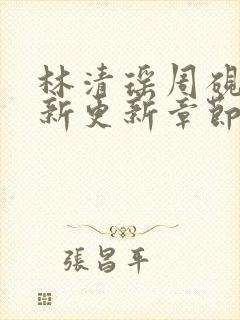 林清瑶周砚
新更新章節
張昌平